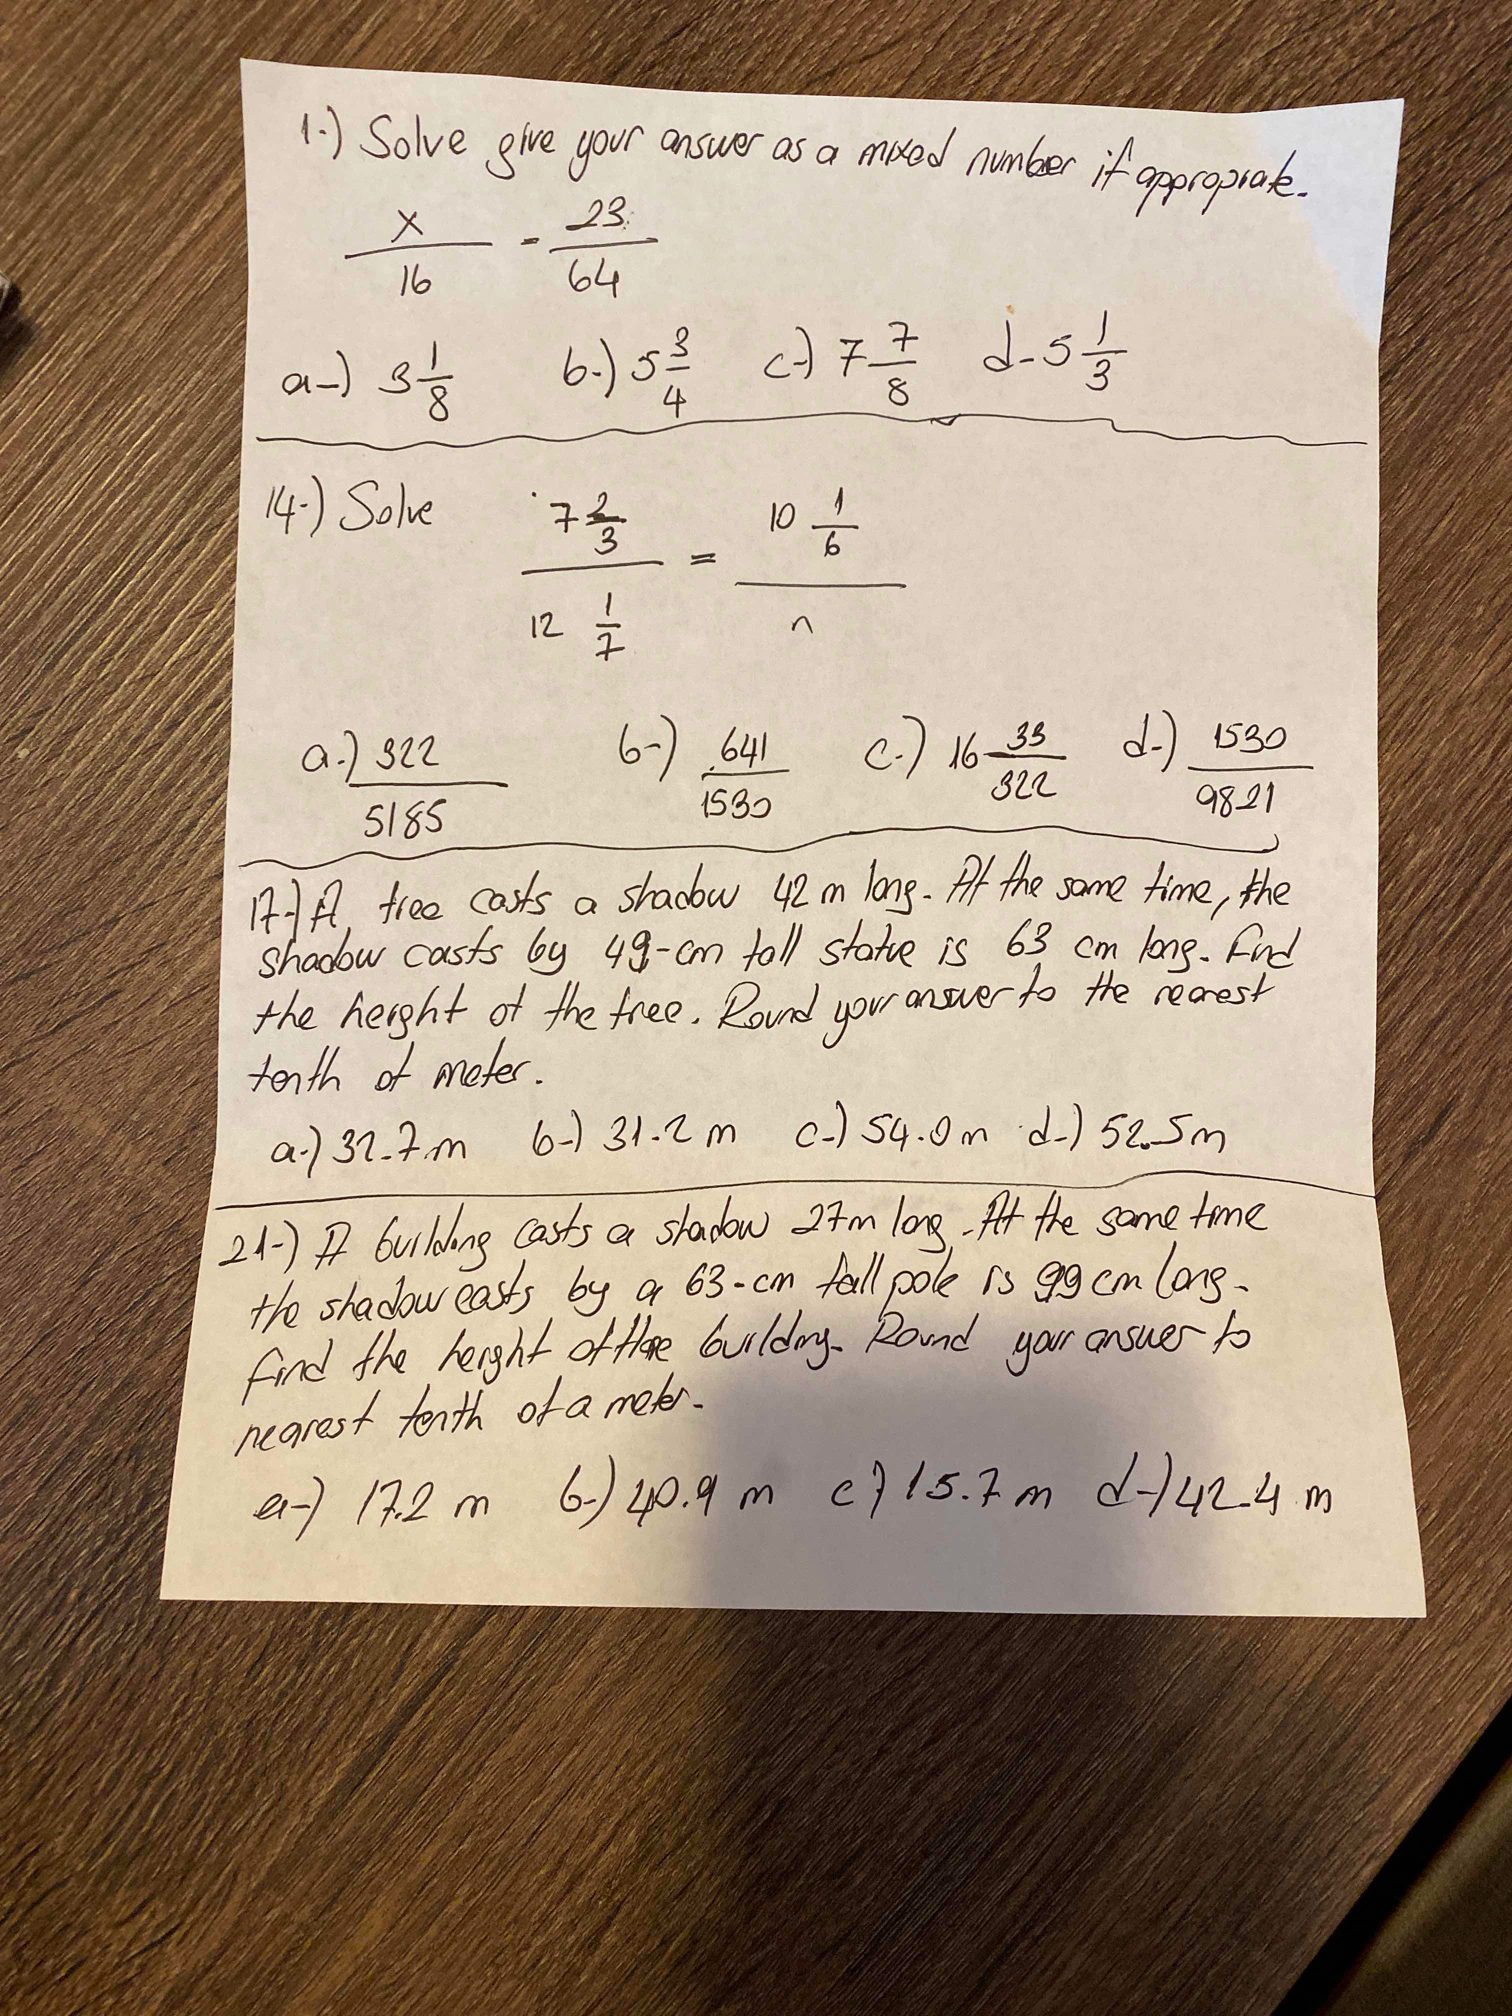 1-) Solve give your answer as a mixed number if appropriate.
x/16 = 23/64
a-) 3 1/8 b-) 5 3/4 c-) 7 7/8 d- 5 1/3
14-) Solve 7 2/3 / 12 1/7 = 10 1/6 / n
a-) 322/5185 b-) 641/1530 c-) 16 33/322 d-) 1530/9821
17-) A tree casts a shadow 42 m long. At the same time, the
shadow casts by 49-cm tall statue is 63 cm long. Find
the height of the tree. Round your answer to the nearest
tenth of meter.
a-) 32.7 m b-) 31.2 m c-) 54.0 m d-) 52.5 m
21-) A building casts a shadow 27m long. At the same time
the shadow casts by a 63-cm tall pole is 99 cm long.
Find the height of the building. Round your answer to
nearest tenth of a meter.
a-) 17.2 m b-) 40.9 m c-) 15.7 m d-) 42.4 m